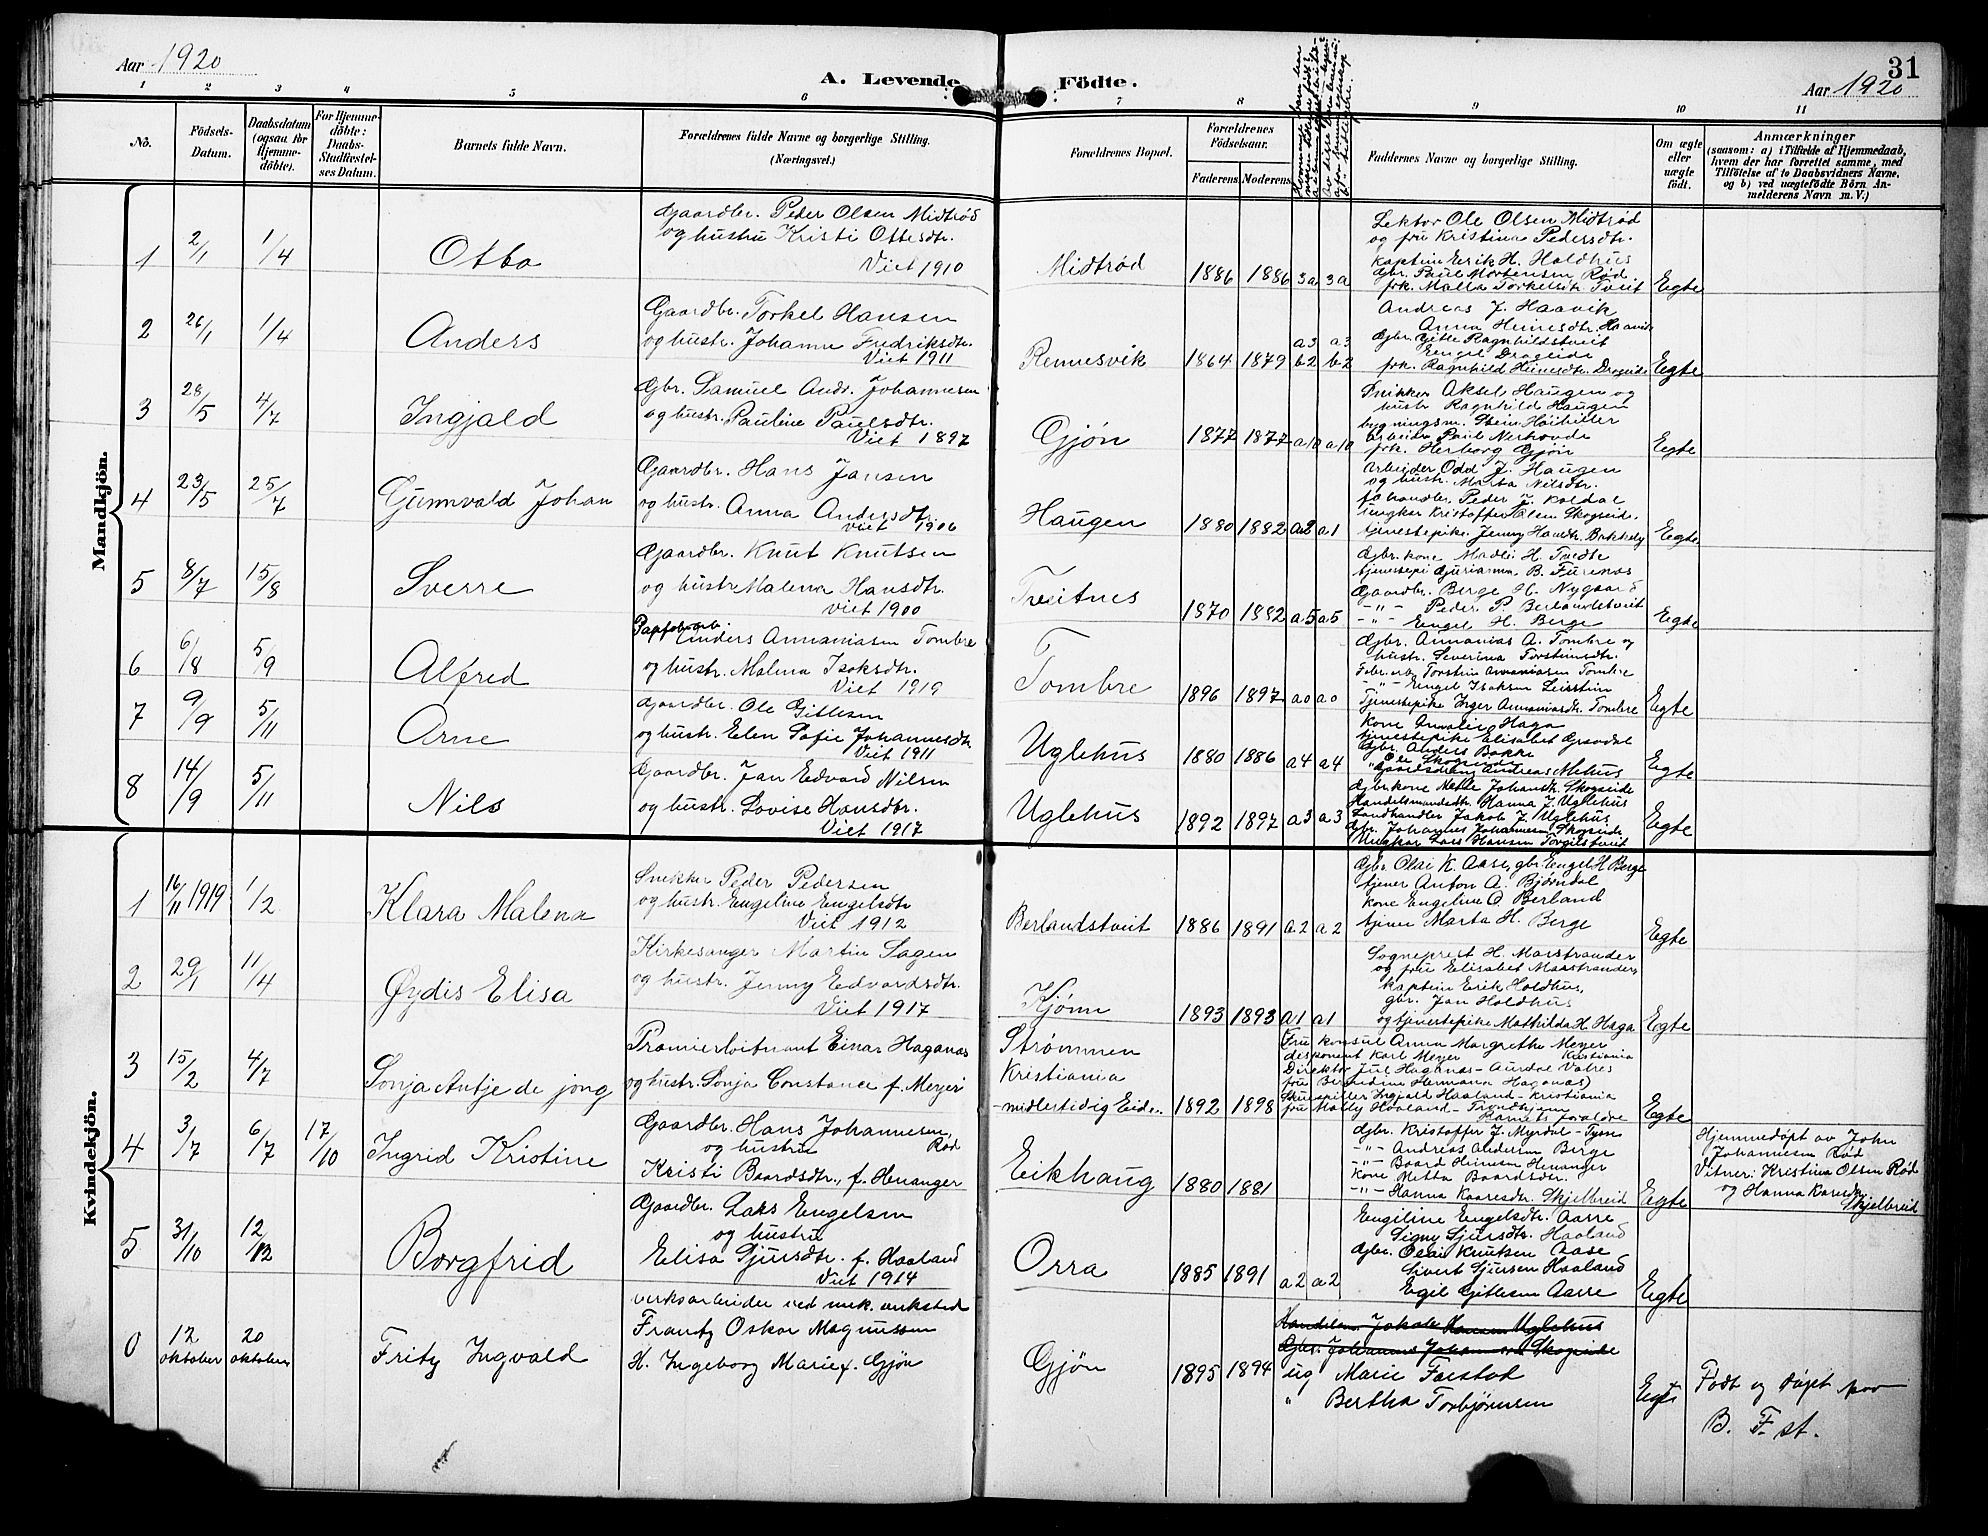 Aar 1920
A. Levende Födte.
31
Aar 1920
1 2 3 4 5 6 7 8 9 10 11
No.
Födsels-
Datum.
Daabsdatum
(ogsaa for
Hjemme-
döbte).
For Hjemme-
döbte:
Daabs-
Stadfæstel-
ses Datum.
Barnets fulde Navn.
Forældrenes fulde Navne og borgerlige Stilling.
(Næringsvei.)
Forældrenes Bopæl.
Forældrenes
Födselsaar.
Faderens. Moderens.
Faddernes Navne og borgerlige Stilling.
Om ægte
eller
uægte
födt.
Anmærkninger
(saasom: a) i Tilfælde af Hjemmedaab,
hvem der har forrettet samme, med
Tilföielse af to Daabsvidners Navne,
og b) ved uægtefödte Börn An-
melderens Navn m. V.)
Mandkjön.
1 2/1 1/4 Otto
Gaardbr. Peder Olsen Midtrød
og hustru Kristi Ottesdtr.
Viet 1910
Midtrød 1886 1886 3a 3a
Lektor Ole Olsen Midtrød
og fru Kristina Pedersdtr.
Kaptein Eerik H. Holdhus
Gbr. Paul Mortensen Rød
frk. Malla Torkelsdtr. Tveit
Egte
2 26/1 1/4 Anders
Gaardbr. Torkel Hansen
og hustr. Johanne Fredriksdtr.
Viet 1911
Rennesvik 1864 1879 a3 b2 a3 b2
Andreas J. Haavik
Anna Heinesdtr. Haavik
Gbr. Gitle Ragnhildstveit
Engel Drageide
frk. Ragnhild Heinesdtr. Drageide
Egte
3 28/5 4/7 Ingjald
Gbr. Samuel Andr. Johannesen
og hustr. Pauline Paulsdtr.
Viet 1897
Gjøn 1877 1877 a10 a10
Snikker Aksel Haugen og
hustr Ragnhild Haugen
bygningsm.
Arbeider Paul
frk. Herborg Gjøn
Egte
4 23/5 25/7 Gunnvald Johan
Gaardbr. Hans Jansen
og hustr. Anna Andersdtr.
Viet 1906
Haugen 1880 1882 a2 a1
Arbeider Odd J. Haugen
og hustr. Marta Nilsdtr.
Peder J. Koldal
ungkar Kristoffer Skogseide.
tjenestepike. Jenny
Egte
5 8/7 15/8 Sverre
Gaardbr. Knut Knutsen
og hustr Malena Hansdtr.
viet 1900
Tveitnes 1870 1882 a5 a5
Gbr. kone Madli H. Tvedte
tjenestepi Gurianna B. Furenes
Gaardbr. Berge H. Nygaard
-"- Peder P. Berlandstveit
-"- Engel H. Berge
Egte
6 6/8 5/9 Alfred
Papfabarb.
Anders Annaniasen Tombre
og hustr. Malena Isaksdtr.
Viet 1919
Tombre 1896 1897 a0 a0
Gbr. Annanias A. Tombre og
hustr. Severina Torsteinsdtr.
Fabr. arb. Torstein Annaniasen Tombre
-"- Engel Isaksen
Tjenestepike Inger Annaniasdtr. Tombre
Egte
7 9/9 5/11 Arne
Gaardbr. Ole Gitlesen
og hustr. Elen Sofie Johannesdtr
Viet 1911
Uglehus 1880 1886 a4 a4
Kone Amalie Haga
tjenestepike Elisabet Gravdal
Gbr. Anders Bakke
" Ole Skogseide
Gaardsdreng Andreas Mehus
Egte
8 14/9 5/11 Nils
Gaardbr. Jan Edvard Nilsen
og hustr. Lovise Hansdtr.
Viet 1917
Uglehus 1892 1897 a3 a3
Gbr kone Nelle Johandtr. Skogseide
Handelsmandsdtr. Hanna J. Uglehus
Landhandler Jakob J. Uglehus
Gbr. Johannes Johannesen Skogseide
Ungkar Lars Hansen Torgilstveit
Egte
Kvindekjön.
1 16/11 1919 1/2 Klara Malena
Snekker Peder Pedersen
og hustr. Engeline Engelsdtr
Viet 1912
Berlandstveit 1886 1891 a2 a2
Gbr. Olai K. Aase, gbr. Engel H Berge
tjener Anton A. Bjørndal
Kone Engeline A. Berland
tjener Marta H. Berge
Egte
2 29/1 11/4 Øydis Elisa
Kirkesanger Martin Sagen
og hustr. Jenny Edvardsdtr.
Viet 1917
Kjønn 1893 1893 a1 a1
Sogneprest H. Marstrander
og fru Elisabet Marstrander,
Kaptein Erik Holdhus,
gbr. Jan Holdhus
og tjenestepike Mathilda H. Haga
Egte
3 15/2 4/7 Sonja Antje de jong
Premierløitnant Einar Haganæs
og hustr. Sonja Constance f. Meyer
Strømmen
Kristiania
midlertidig Eide 1892 1898
Fru konsul Anna Margrethe Meyer
disponent Karl Meyer Kristiania
Direktør Jul Haganæs - Aurdal Valres
fru Berendine Hermana Haganæs)
Skuespiller Ingjald Haaland - Kristiania
fru Molly Haaland - Trondhjem
Barnets foraldre
Egte
4 3/7 6/7 17/10 Ingrid Kristine
Gaardbr. Hans Johannesen
og hustru Rød
Kristi Baardsdtr., f. Henanger
Eikhaug 1880 1881
Gbr. Kristoffer J. Myrdal - Tysse
-"- Andreas Andersen Berge
-"- Baard Heinesen Henanger
Kone Metta Baardsdtr.
-"- Hanna Kaaresdtr. Skjelbreid
Egte
Hjemmedøpt av John
Johannesen Rød
Vitner: Kristina Olsen Rød
og Hanna Karesdtr
Skjelbreid
5 31/10 12/12 Borgfrid
Gaardbr. Lars Engelsen
og hustru
Elisa Sjursdtr. f. Haaland
Viet 1914
Orra 1885 1891 a2 a2
Engeline Engelsdtr. Aarre
Signy Sjursdtr. Haaland
Gbr. Olai Knutsen Aase
Sivert Sjursen Haaland
Egil Gitlesen Aarre
Egte
0 12 oktober 20 oktober Fritz Ingvald
verksarbeider ved mek. verksted
Frantz Oskar Magnussen
H. Ingeborg Marie f. Gjøn
Gjøn 1895 1894
Handelsm. Jakob Hansen Uglehus
Gbr. Johannes Johannesen Skogseide
ug Marie Farstad
" Bertha Torbjørnsen
Egte
Født og døpt paa
B. F. st.